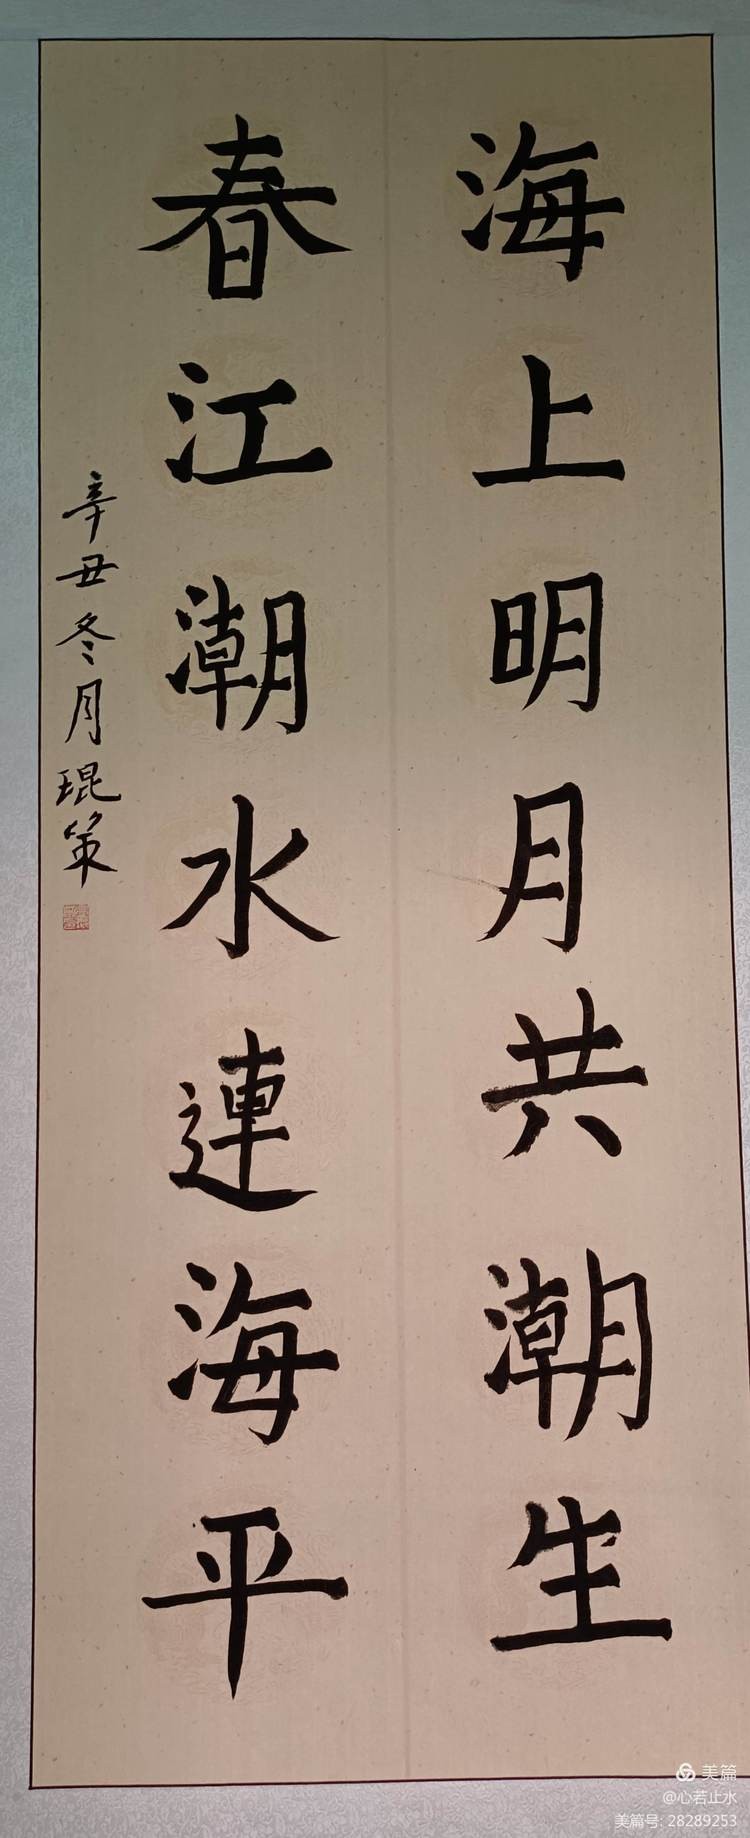 海上明月共潮生
春江潮水連海平
辛丑冬月琨策
美篇
@心若止水
美篇号: 28289253